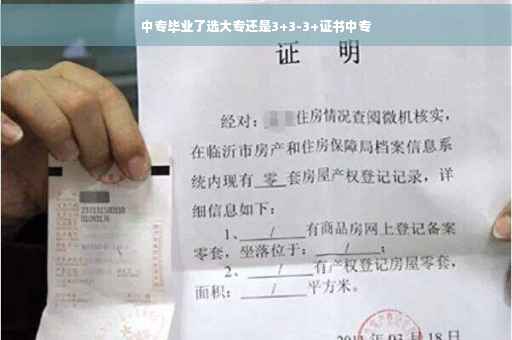 中专毕业了选大专还是3+3-3+证书中专
证 明
经对：住房情况查阅微机核实，
在临沂市房产和住房保障局档案信息系
统内现有 零 套房屋产权登记记录，详
细信息如下：
1、 / 有商品房网上登记备案
零套，坐落位于： / ；
2、 / 有产权登记房屋零套，
面积： / 平方米。
03月18日